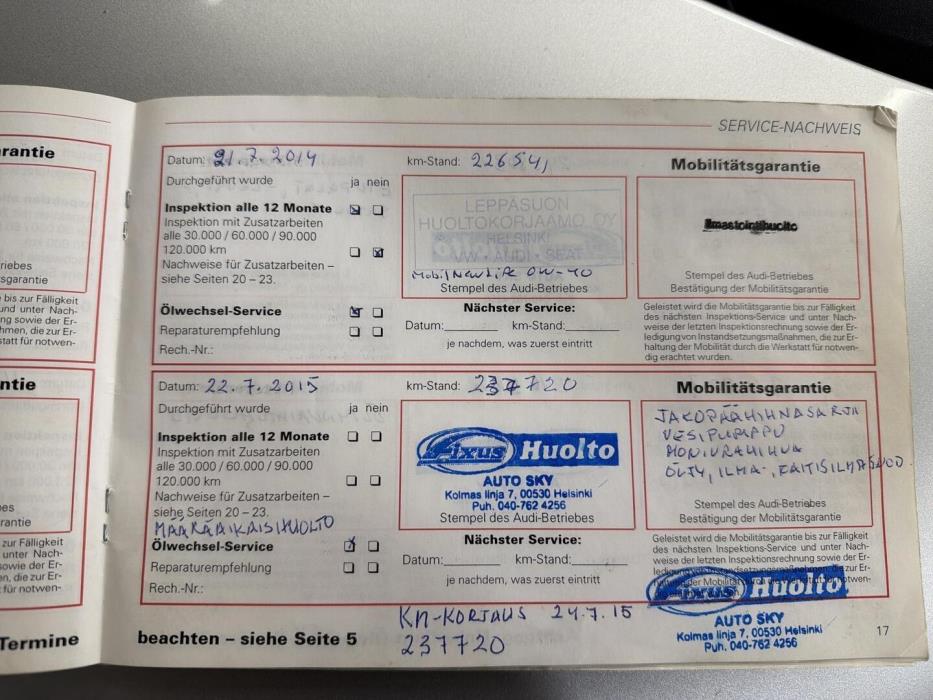 SERVICE-NACHWEIS
rantie
riebes
sgarantie
bis zur Fälligkeit
und unter Nach-
ng sowie der Er-
hmen, die zur Er-
statt für notwen-
Datum: 21.7.2014
km-Stand: 226541
Durchgeführt wurde ja nein
Inspektion alle 12 Monate
Inspektion mit Zusatzarbeiten
alle 30.000 / 60.000 / 90.000
120.000 km
Nachweise für Zusatzarbeiten –
siehe Seiten 20 – 23.
Ölwechsel-Service
Reparaturempfehlung
Rech.-Nr.:
LEPPÄSUON
HUOLTOKORJAAMO OY
HELSINKI
VW - AUDI - SEAT
0W-40
Stempel des Audi-Betriebes
Nächster Service:
Datum: km-Stand:
je nachdem, was zuerst eintritt
Mobilitätsgarantie
Ilmastointihuolto
Stempel des Audi-Betriebes
Bestätigung der Mobilitätsgarantie
Geleistet wird die Mobilitätsgarantie bis zur Fälligkeit
des nächsten Inspektions-Service und unter Nach-
weise der letzten Inspektionsrechnung sowie der Er-
ledigung von Instandsetzungsmaßnahmen, die zur Er-
haltung der Mobilität durch die Werkstatt für notwen-
dig erachtet wurden.
ntie
es
rantie
zur Fälligkeit
unter Nach-
sowie der Er-
en, die zur Er-
für notwen-
Termine
Datum: 22.7.2015
km-Stand: 237720
Durchgeführt wurde ja nein
Inspektion alle 12 Monate
Inspektion mit Zusatzarbeiten
alle 30.000 / 60.000 / 90.000
120.000 km
Nachweise für Zusatzarbeiten –
siehe Seiten 20 – 23.
MÄÄRÄAIKAISHUOLTO
Ölwechsel-Service
Reparaturempfehlung
Rech.-Nr.:
Fixus Huolto
AUTO SKY
Kolmas linja 7, 00530 Helsinki
Puh. 040-762 4256
Stempel des Audi-Betriebes
Nächster Service:
Datum: km-Stand:
je nachdem, was zuerst eintritt
Mobilitätsgarantie
JAKOPÄÄHIHNASARJA
VESIPUMPPU
MONIURAHIHNA
ÖLJY, ILMA-, RAITISILMASUOD.
Stempel des Audi-Betriebes
Bestätigung der Mobilitätsgarantie
Geleistet wird die Mobilitätsgarantie bis zur Fälligkeit
des nächsten Inspektions-Service und unter Nach-
weise der letzten Inspektionsrechnung sowie der Er-
Fixus Huolto
AUTO SKY
Kolmas linja 7, 00530 Helsinki
Puh. 040-762 4256
KM-KORJAUS 24.7.15
237720
beachten – siehe Seite 5
17